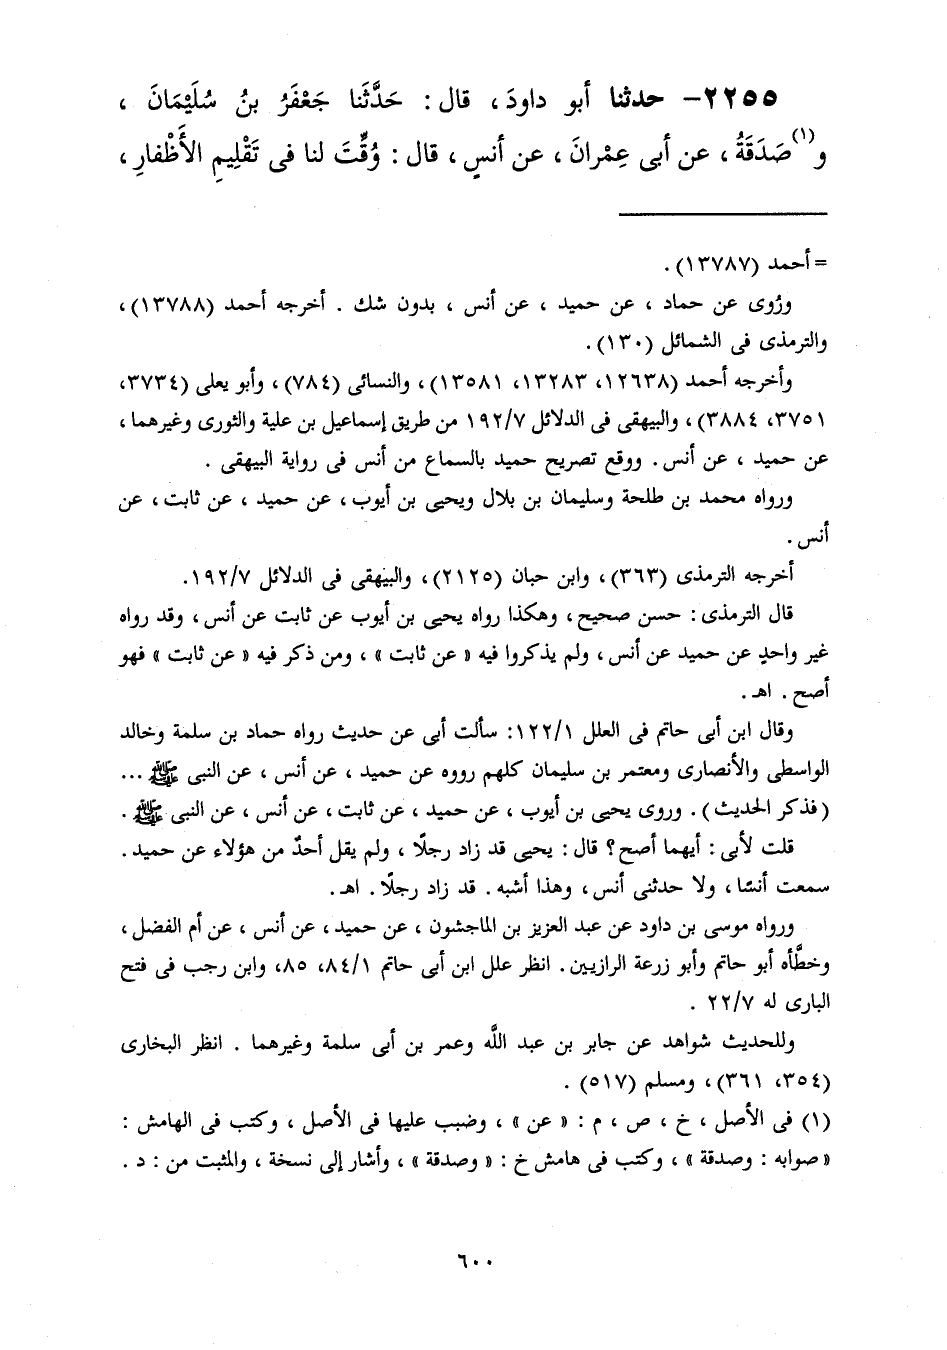 ٢٢٥٥- حدثنا أبو داودَ، قال: حَدَّثَنا جَعْفَرُ بنُ سُلَيْمَانَ،
و(١)صَدَقَةُ، عن أبى عِمْرانَ، عن أنسٍ، قال: وُقِّتَ لنا فى تَقْلِيمِ الأَظْفارِ،
=أحمد (١٣٧٨٧).
ورُوى عن حماد، عن حميد، عن أنس، بدون شك. أخرجه أحمد (١٣٧٨٨)،
والترمذى فى الشمائل (١٣٠).
وأخرجه أحمد (١٢٦٣٨، ١٣٢٨٣، ١٣٥٨١)، والنسائى (٧٨٤)، وأبو يعلى (٣٧٣٤،
٣٧٥١، ٣٨٨٤)، والبيهقى فى الدلائل ١٩٢/٧ من طريق إسماعيل بن علية والثورى وغيرهما،
عن حميد، عن أنس. ووقع تصريح حميد بالسماع من أنس فى رواية البيهقى.
ورواه محمد بن طلحة وسليمان بن بلال ويحيى بن أيوب، عن حميد، عن ثابت، عن
أنس.
أخرجه الترمذى (٣٦٣)، وابن حبان (٢١٢٥)، والبيهقى فى الدلائل ١٩٢/٧.
قال الترمذى: حسن صحيح، وهكذا رواه يحيى بن أيوب عن ثابت عن أنس، وقد رواه
غير واحدٍ عن حميد عن أنس، ولم يذكروا فيه «عن ثابت»، ومن ذكر فيه «عن ثابت» فهو
أصح. اهـ.
وقال ابن أبى حاتم فى العلل ١٢٢/١: سألت أبى عن حديث رواه حماد بن سلمة وخالد
الواسطى والأنصارى ومعتمر بن سليمان كلهم رووه عن حميد، عن أنس، عن النبى ﷺ ...
(فذكر الحديث). وروى يحيى بن أيوب، عن حميد، عن ثابت، عن أنس، عن النبى ﷺ.
قلت لأبى: أيهما أصح؟ قال: يحيى قد زاد رجلًا، ولم يقل أحدٌ من هؤلاء عن حميد.
سمعت أنسًا، ولا حدثنى أنس، وهذا أشبه. قد زاد رجلًا. اهـ.
ورواه موسى بن داود عن عبد العزيز بن الماجشون، عن حميد، عن أنس، عن أم الفضل،
وخطَّأه أبو حاتم وأبو زرعة الرازيين. انظر علل ابن أبى حاتم ٨٤/١، ٨٥، وابن رجب فى فتح
البارى له ٢٢/٧.
وللحديث شواهد عن جابر بن عبد اللَّه وعمر بن أبى سلمة وغيرهما. انظر البخارى
(٣٥٤، ٣٦١)، ومسلم (٥١٧).
(١) فى الأصل، خ، ص، م: «عن»، وضبب عليها فى الأصل، وكتب فى الهامش:
«صوابه: وصدقة»، وكتب فى هامش خ: «وصدقة»، وأشار إلى نسخة، والمثبت من: د.
٦٠٠